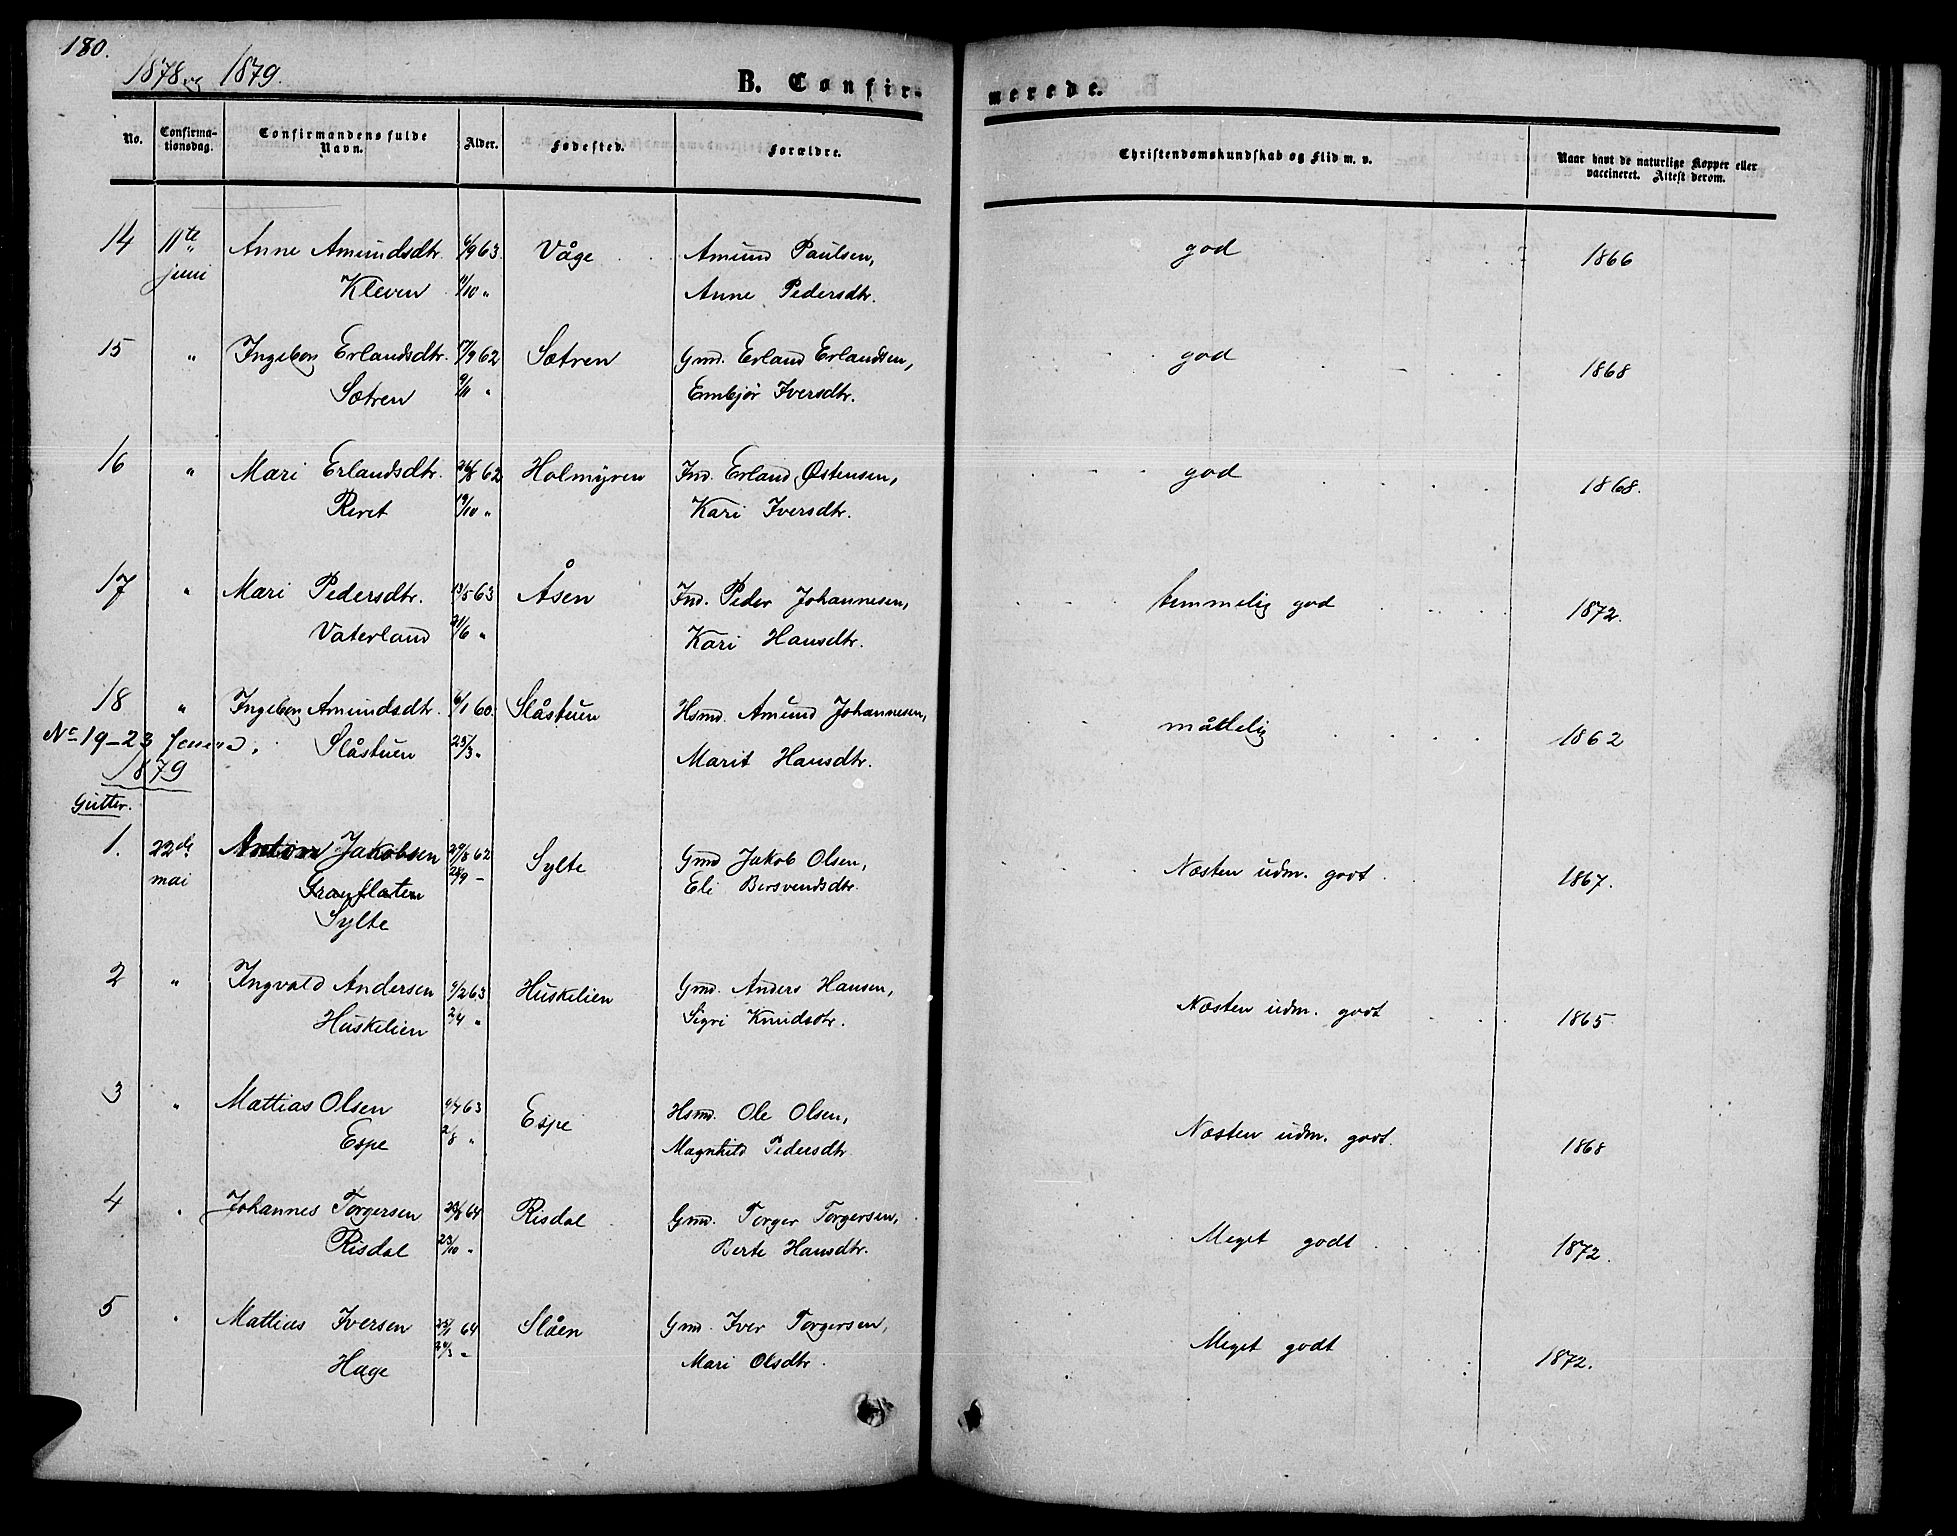 180.
1878 og 1879.
B. Confirmerede.
No. | Confirmationsdag. | Confirmandens fulde Navn. | Alder. | Fødested. | Forældre. | Christendomskundskab og Flid m. v. | Naar havt de naturlige Kopper eller vaccineret. Attest derom.
14 11te Anne Amundsdtr. 6/9 63. Våge Amund Paulsen, god 1866
juni Kleven /10 " Anne Pedersdtr.
15 " Ingebor Erlandsdtr. 17/9 62 Sætren Gmd. Erland Erlandsen, god 1868
Sætren 9/11 " Embjør Iversdtr.
16 " Mari Erlandsdtr. 26/8 62 Holmyren Ind. Erland Østensen, god 1868.
Revet 19/10 " Kari Iversdtr.
17 " Mari Pedersdtr. 13/5 63 Åsen Ind. Peder Johannesen, temmelig god 1872.
Vaterland 21/6 " Kari Hansdtr.
18 " Ingebor Amundsdtr. 6/1 60. Slåstuen Hsmd. Amund Johannesen, måttelig 1862
No 19-23 Slåstuen 25/3 " Marit Hansdtr.
1879
Gutter.
1. 22de Anton Jakobsen 29/8 62 Sylte Gmd Jakob Olsen, Næsten udm. godt 1867.
mai Granflaten 28/9 - Eli Bersvendsdtr.
Sylte
2 " Ingvald Andersen /2 63 Huskelien Gmd. Anders Hansen, Næsten udm. godt 1865.
Huskelien 2/4 " Sigri Knudsdtr.
3 " Mattias Olsen /7 63 Espe Hsmd. Ole Olsen, Næsten udm. godt. 1868
Espe 2/8 " Magnhild Pedersdtr
4 " Johannes Torgersen 23/8 64 Risdal Gmd. Torger Torgersen, Meget godt 1872.
Risdal 23/10 " Berte Hansdtr.
5 " Mattias Iversen 25/1 64 Slåen Gmd. Iver Torgersen, Meget godt 1872.
Hage /3 - Mari Olsdtr.